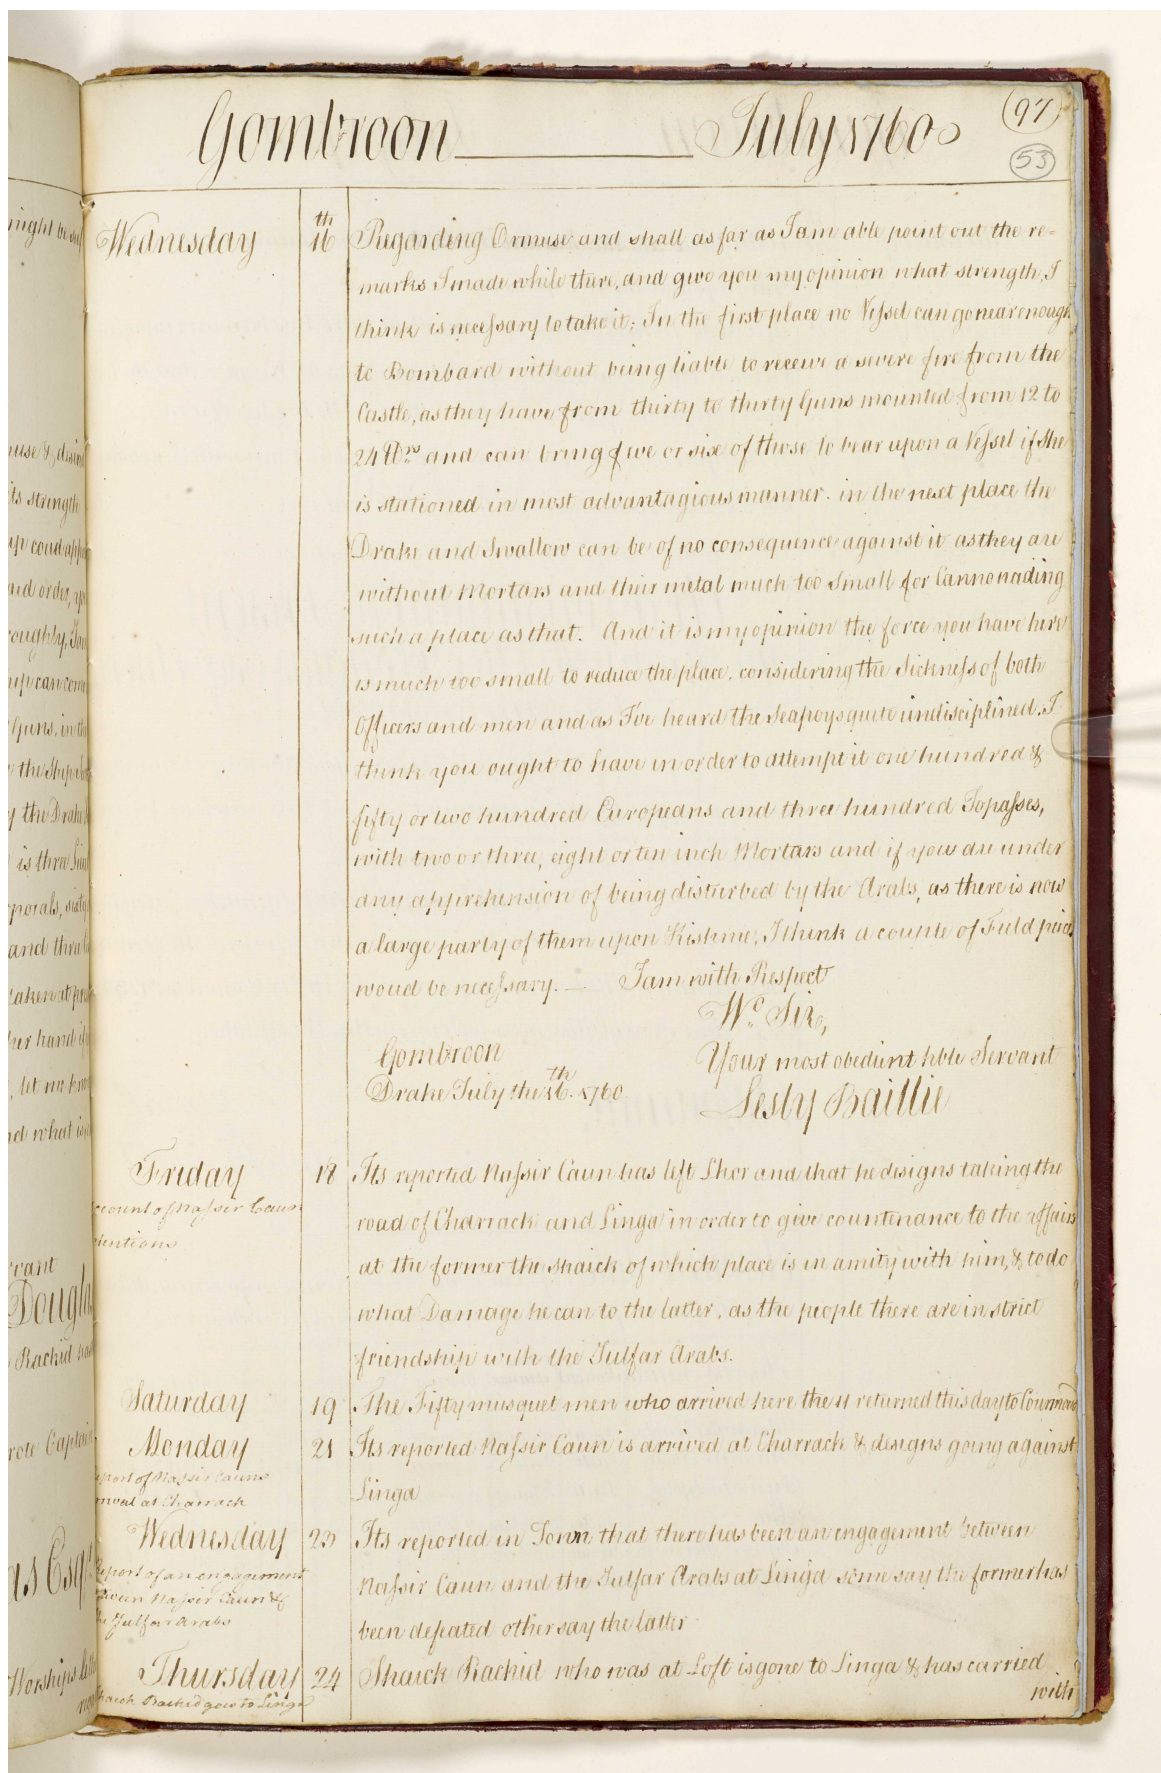 Gombroon July 1760
(97)
53
Wednesday
16th
Regarding Ormuse and shall as far as I am able point out the re=
marks I made while there, and give you my opinion what strength, I
think is necessary to take it; In the first place no Vessel can go near enough
to Bombard without being liable to receive a severe fire from the
Castle, as they have from thirty to thirty Guns mounted from 12 to
24 Pdrs and can bring five or six of those to bear upon a Vessel if she
is stationed in most advantagious manner. in the next place the
Drake and Swallow can be of no consequence against it as they are
without Mortars and their metal much too small for Cannonading
such a place as that. And it is my opinion the force you have here
is much too small to reduce the place, considering the Sickness of both
Officers and men and as I've heard the Seapoys quite undisciplined. I
think you ought to have in order to attempt it one hundred &
fifty or two hundred Europeans and three hundred Topasses,
with two or three, eight or ten inch Mortars and if you are under
any apprehension of being disturbed by the Arabs, as there is now
a large party of them upon Kishme, I think a couple of Field peices
woud be necessary. — I am with Respect
W.c Sir,
Gombroon
Your most obedient hble Servant
Drake July the 16th. 1760
Lesly Baillie
Friday
18
Its reported Nassir Caun has left Lhor and that he designs taking the
ccount of Nassir Caun
road of Charrack and Linga in order to give countenance to the affairs
tentions
at the former the Shaick of which place is in amity with him, & to do
what Damage he can to the latter, as the people there are in strict
friendship with the Julfar Arabs.
Saturday
19
The Fifty musquet men who arrived here the 11 returned this day to
Monday
21
Its reported Nassir Caun is arrived at Charrack & designs going against
eport of Nassir Cauns
Linga
rrival at Charrack
Wednesday
23
Its reported in Town that there has been an engagement between
Report of an engagement
Nassir Caun and the Julfar Arabs at Linga some say the former has
tween Nassir Caun &
been defeated other say the latter
the Julfar Arabs
Thursday
24
Shaick Rachid who was at Loft is gone to Linga & has carried
Shaick Rachid goes to Linga
with